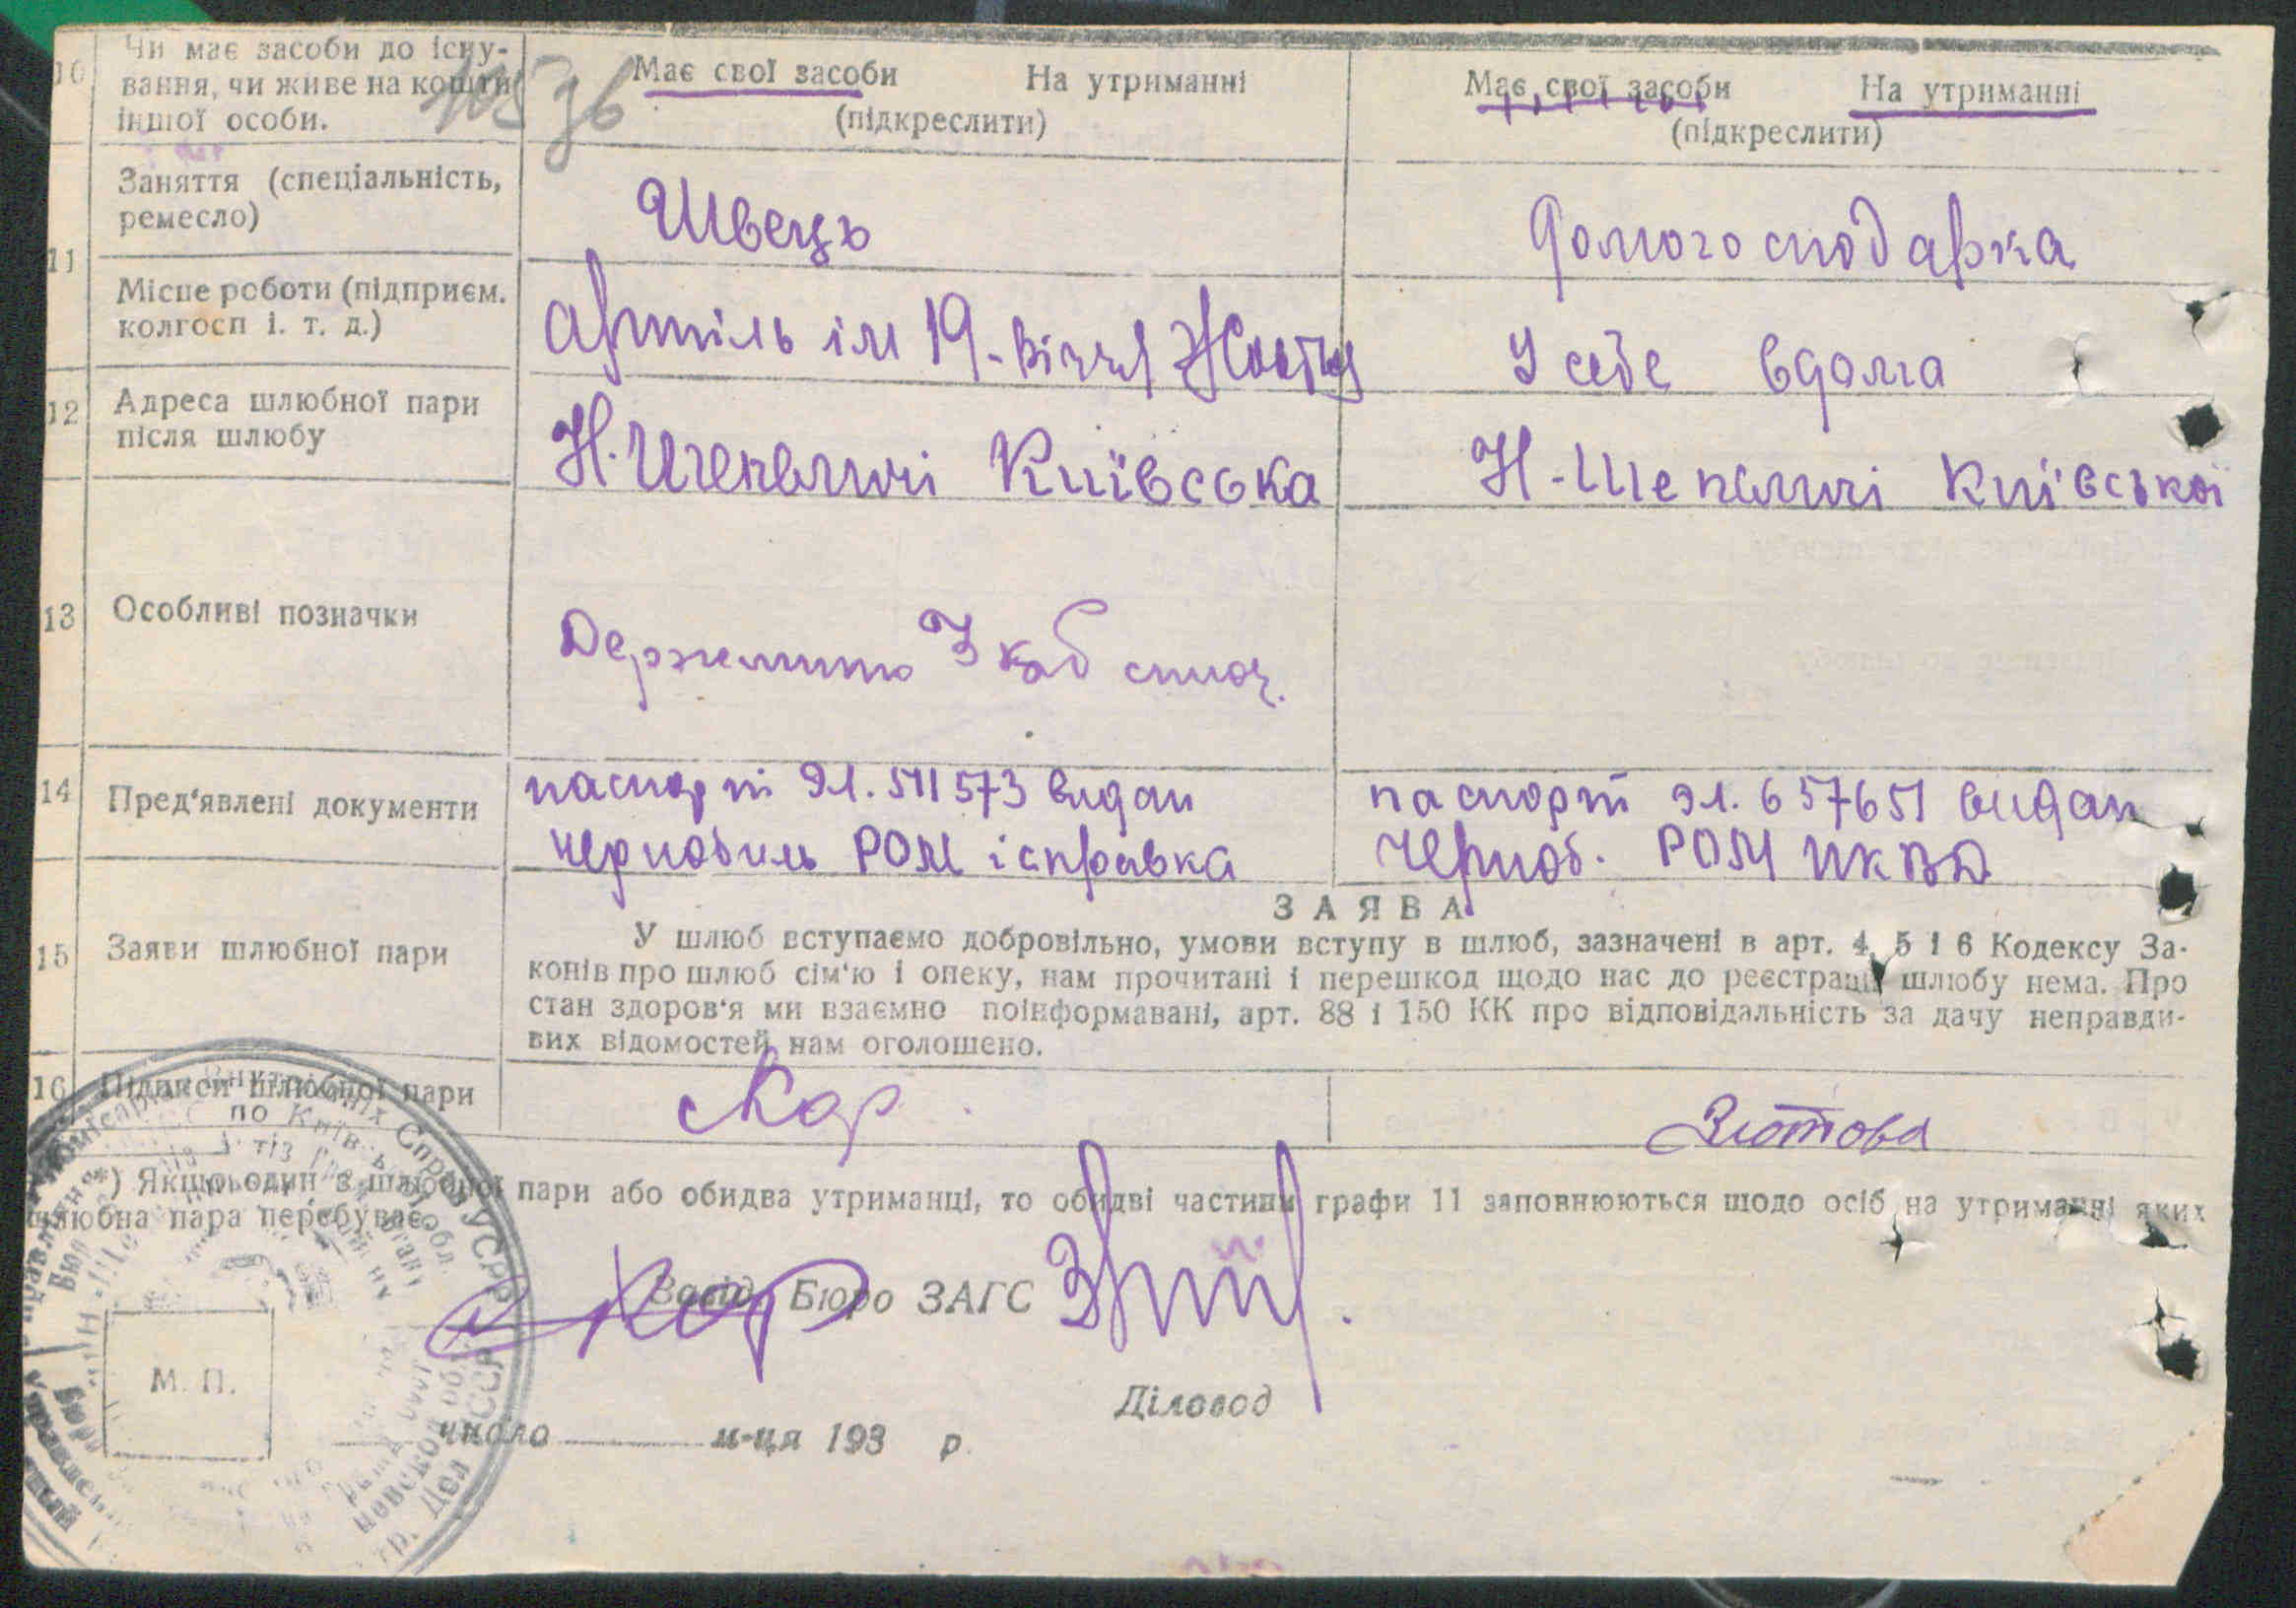 10 Чи має засоби до існу-
вання, чи живе на кошти
іншої особи.
Має свої засоби На утриманні
(підкреслити)
Має свої засоби На утриманні
(підкреслити)
11 Заняття (спеціальність,
ремесло)
Швець
Домогосподарка
Місце роботи (підприєм.
колгосп і. т. д.)
Артіль ім 19-річчя Жовтня
У себе вдома
12 Адреса шлюбної пари
після шлюбу
Н. Шепеличі Київська
Н-Шепеличі Київської
13 Особливі позначки
Держмито 3 карб
14 Пред'явлені документи
паспорт ЯЛ. 511573 видан
чернобиль РОМ і справка
паспорт ЯЛ. 657651 видан
Черноб. РОМ НКВД
15 Заяви шлюбної пари
ЗАЯВА
У шлюб вступаємо добровільно, умови вступу в шлюб, зазначені в арт. 4, 5 і 6 Кодексу За-
конів про шлюб сім'ю і опеку, нам прочитані і перешкод щодо нас до реєстрації шлюбу нема. Про
стан здоров'я ми взаємно поінформавані, арт. 88 і 150 КК про відповідальність за дачу неправди-
вих відомостей нам оголошено.
16 Підписи шлюбної пари
Кор
*) Якщо один з шлюбної пари або обидва утриманці, то обидві частини графи 11 заповнюються щодо осіб на утриманні яких
шлюбна пара перебуває.
Завід. Бюро ЗАГС
М. П.
Діловод
число м-ця 193 р.